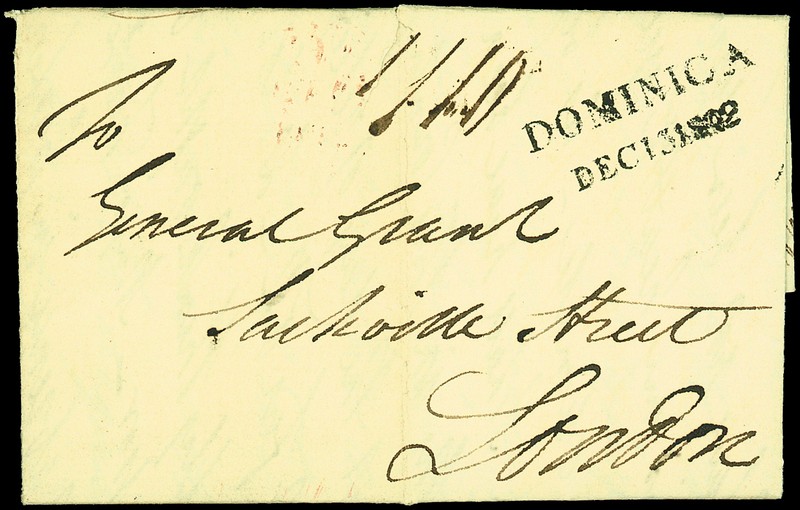 DOMINICA
DEC 13 1802
To
General Grant
Sackville Street
London